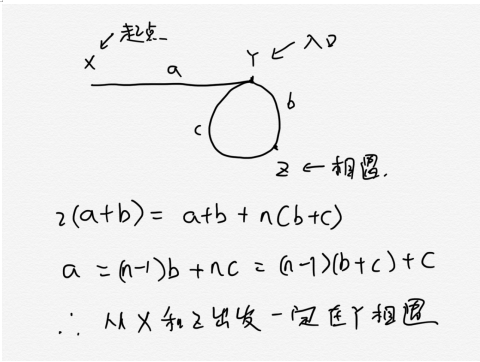 起点
X a Y 入口
c b
Z 相遇.
2(a+b) = a+b + n(b+c)
a = (n-1)b + nc = (n-1)(b+c) + c
∴ 从X和Z出发一定在Y相遇